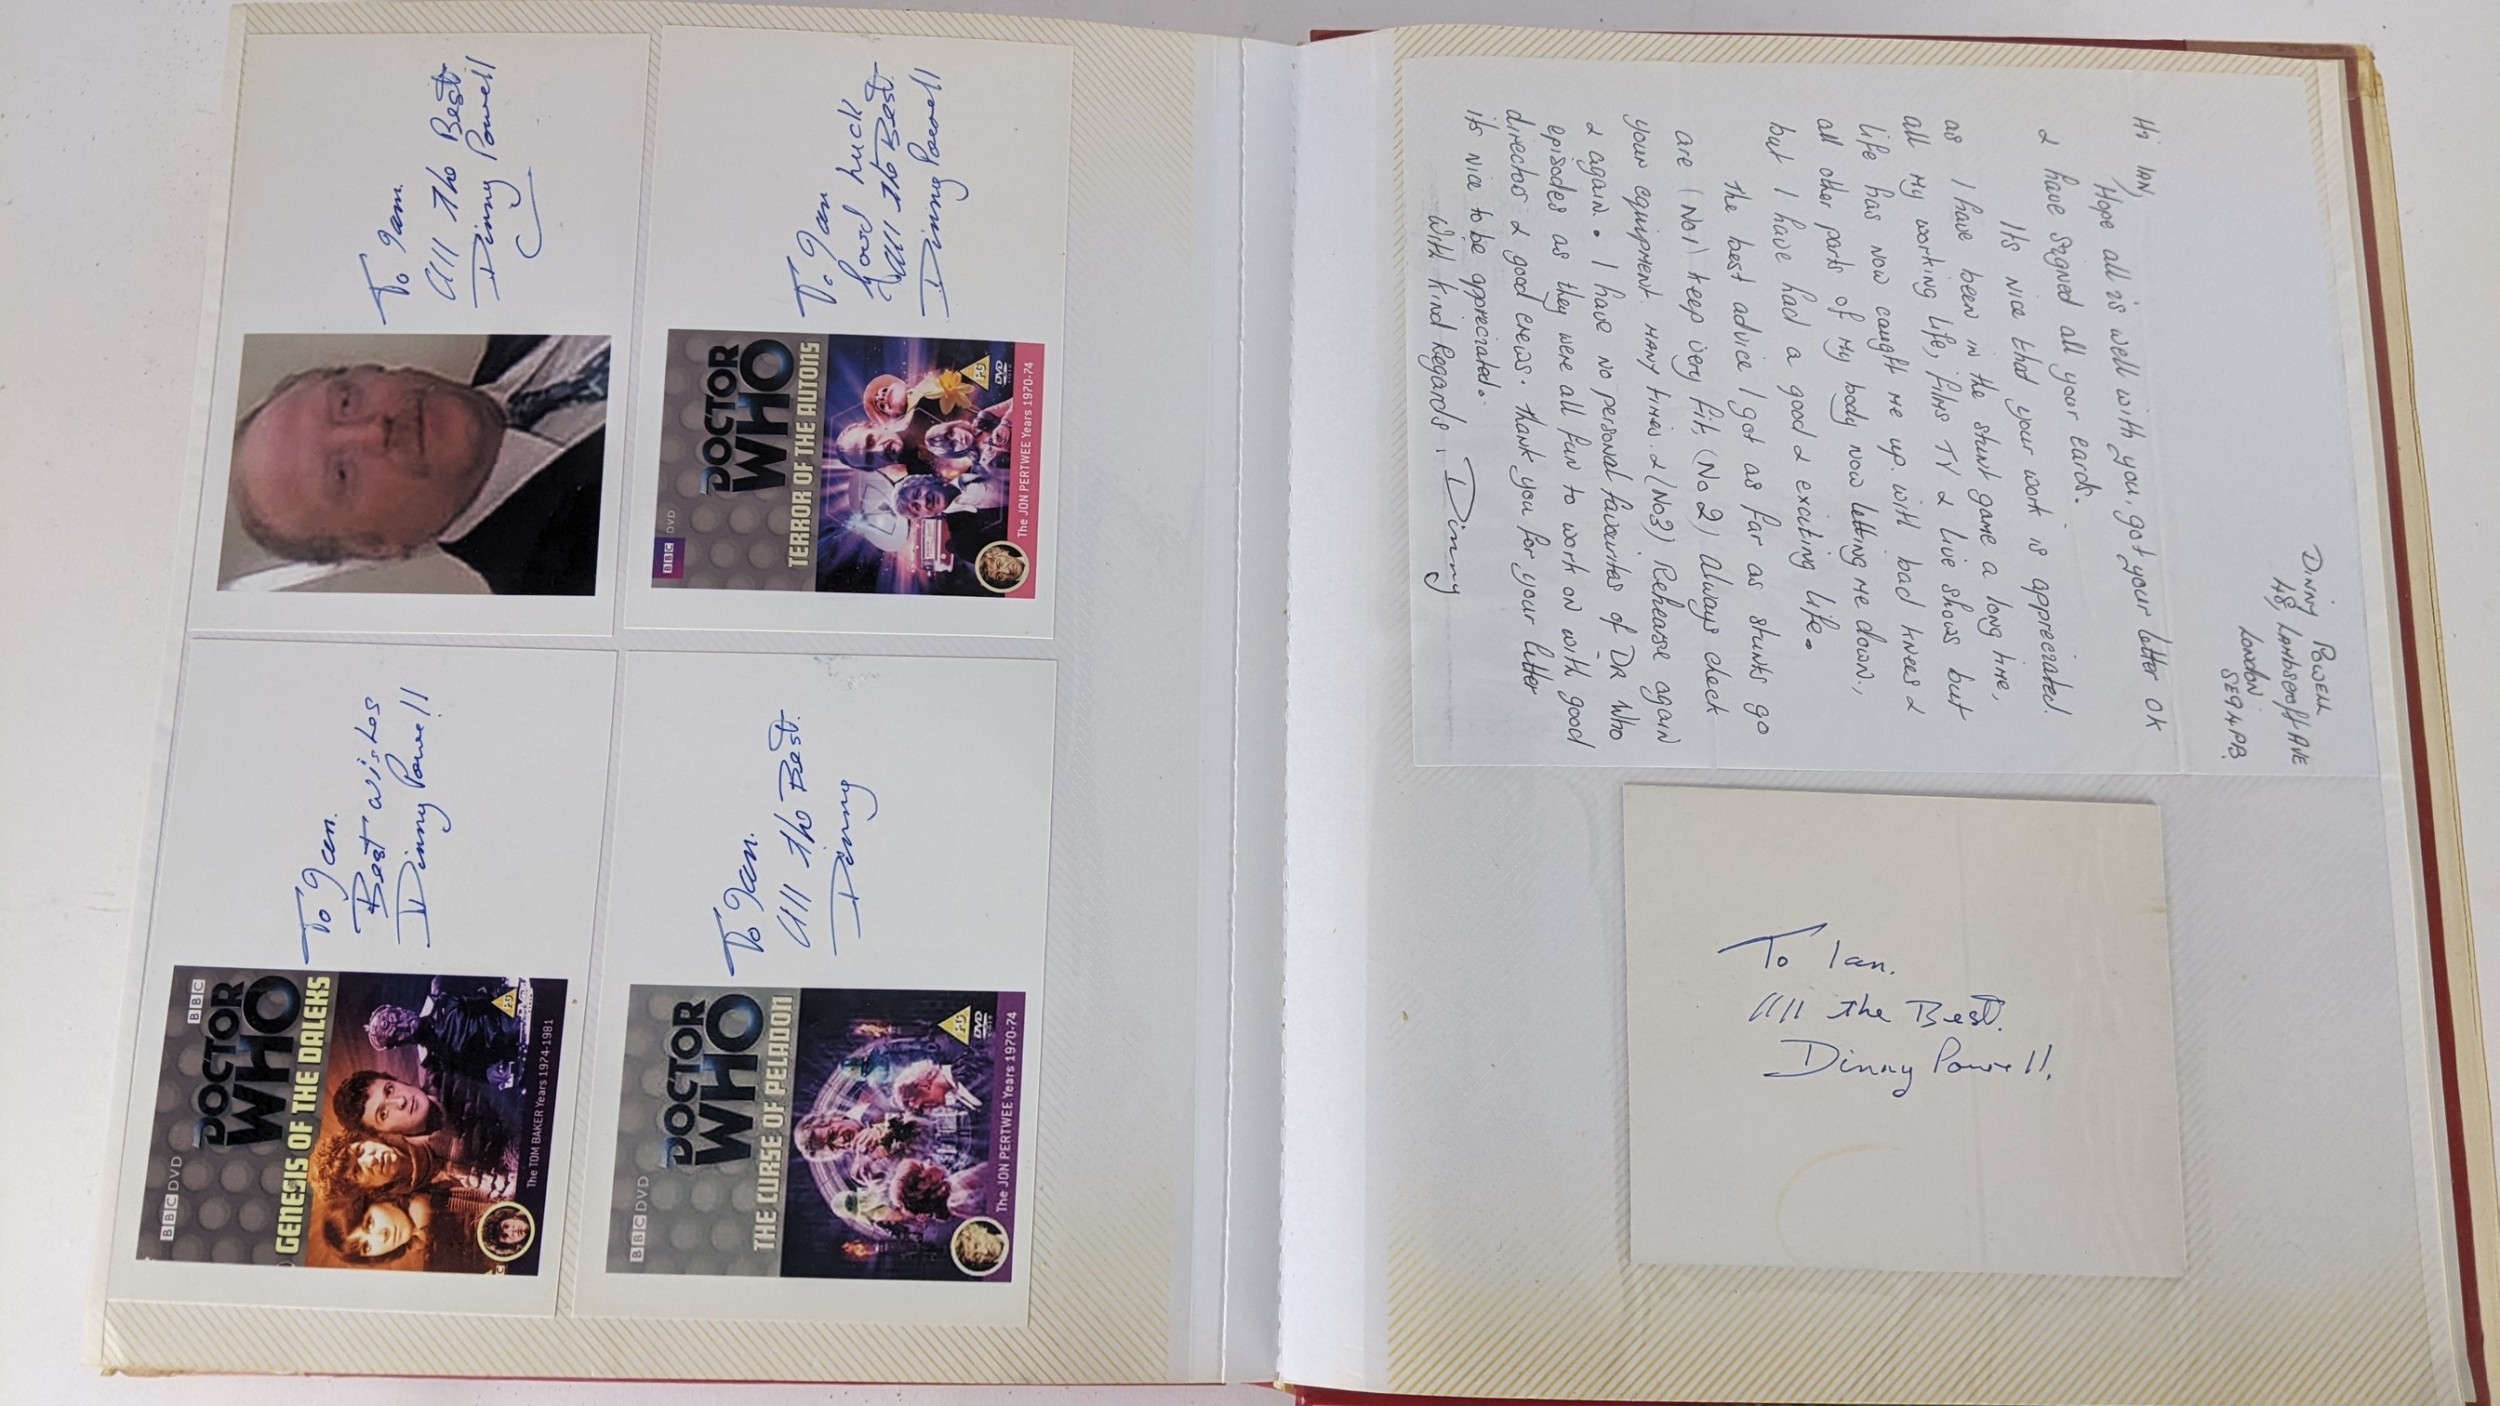 To Ian.
All the Best
Dinny Powell
To Ian
Good Luck
All the Best
Dinny Powell
BBC DVD
DOCTOR
WHO
TERROR OF THE AUTONS
PG
DVD
VIDEO
The JON PERTWEE Years 1970-74
To Ian.
Best wishes
Dinny Powell
BBC DVD
BBC
DOCTOR
WHO
GENESIS OF THE DALEKS
PG
DVD
The TOM BAKER Years 1974-1981
To Ian.
All the Best.
Dinny
BBC DVD
DOCTOR
WHO
THE CURSE OF PELADON
PG
DVD
VIDEO
The JON PERTWEE Years 1970-74
Dinny Powell
48 Lambscroft Ave
London
SE9 4PB.
Hi Ian,
Hope all is well with you, got your letter ok
& have signed all your cards.
Its nice that your work is appreciated.
as I have been in the stunt game a long time,
all my working life, films TV & live shows but
life has now caught me up with bad knees &
all other parts of my body now letting me down.,
but I have had a good & exciting life.
The best advice I got as far as stunts go
are (No1) keep very fit, (No 2) Always check
your equipment many times. & (No3) Rehearse again
& again. I have no personal favourites of DR Who
episodes as they were all fun to work on with good
director & good crews. Thank you for your letter
its nice to be appreciated.
With kind Regards, Dinny
To Ian.
All the Best.
Dinny Powell.